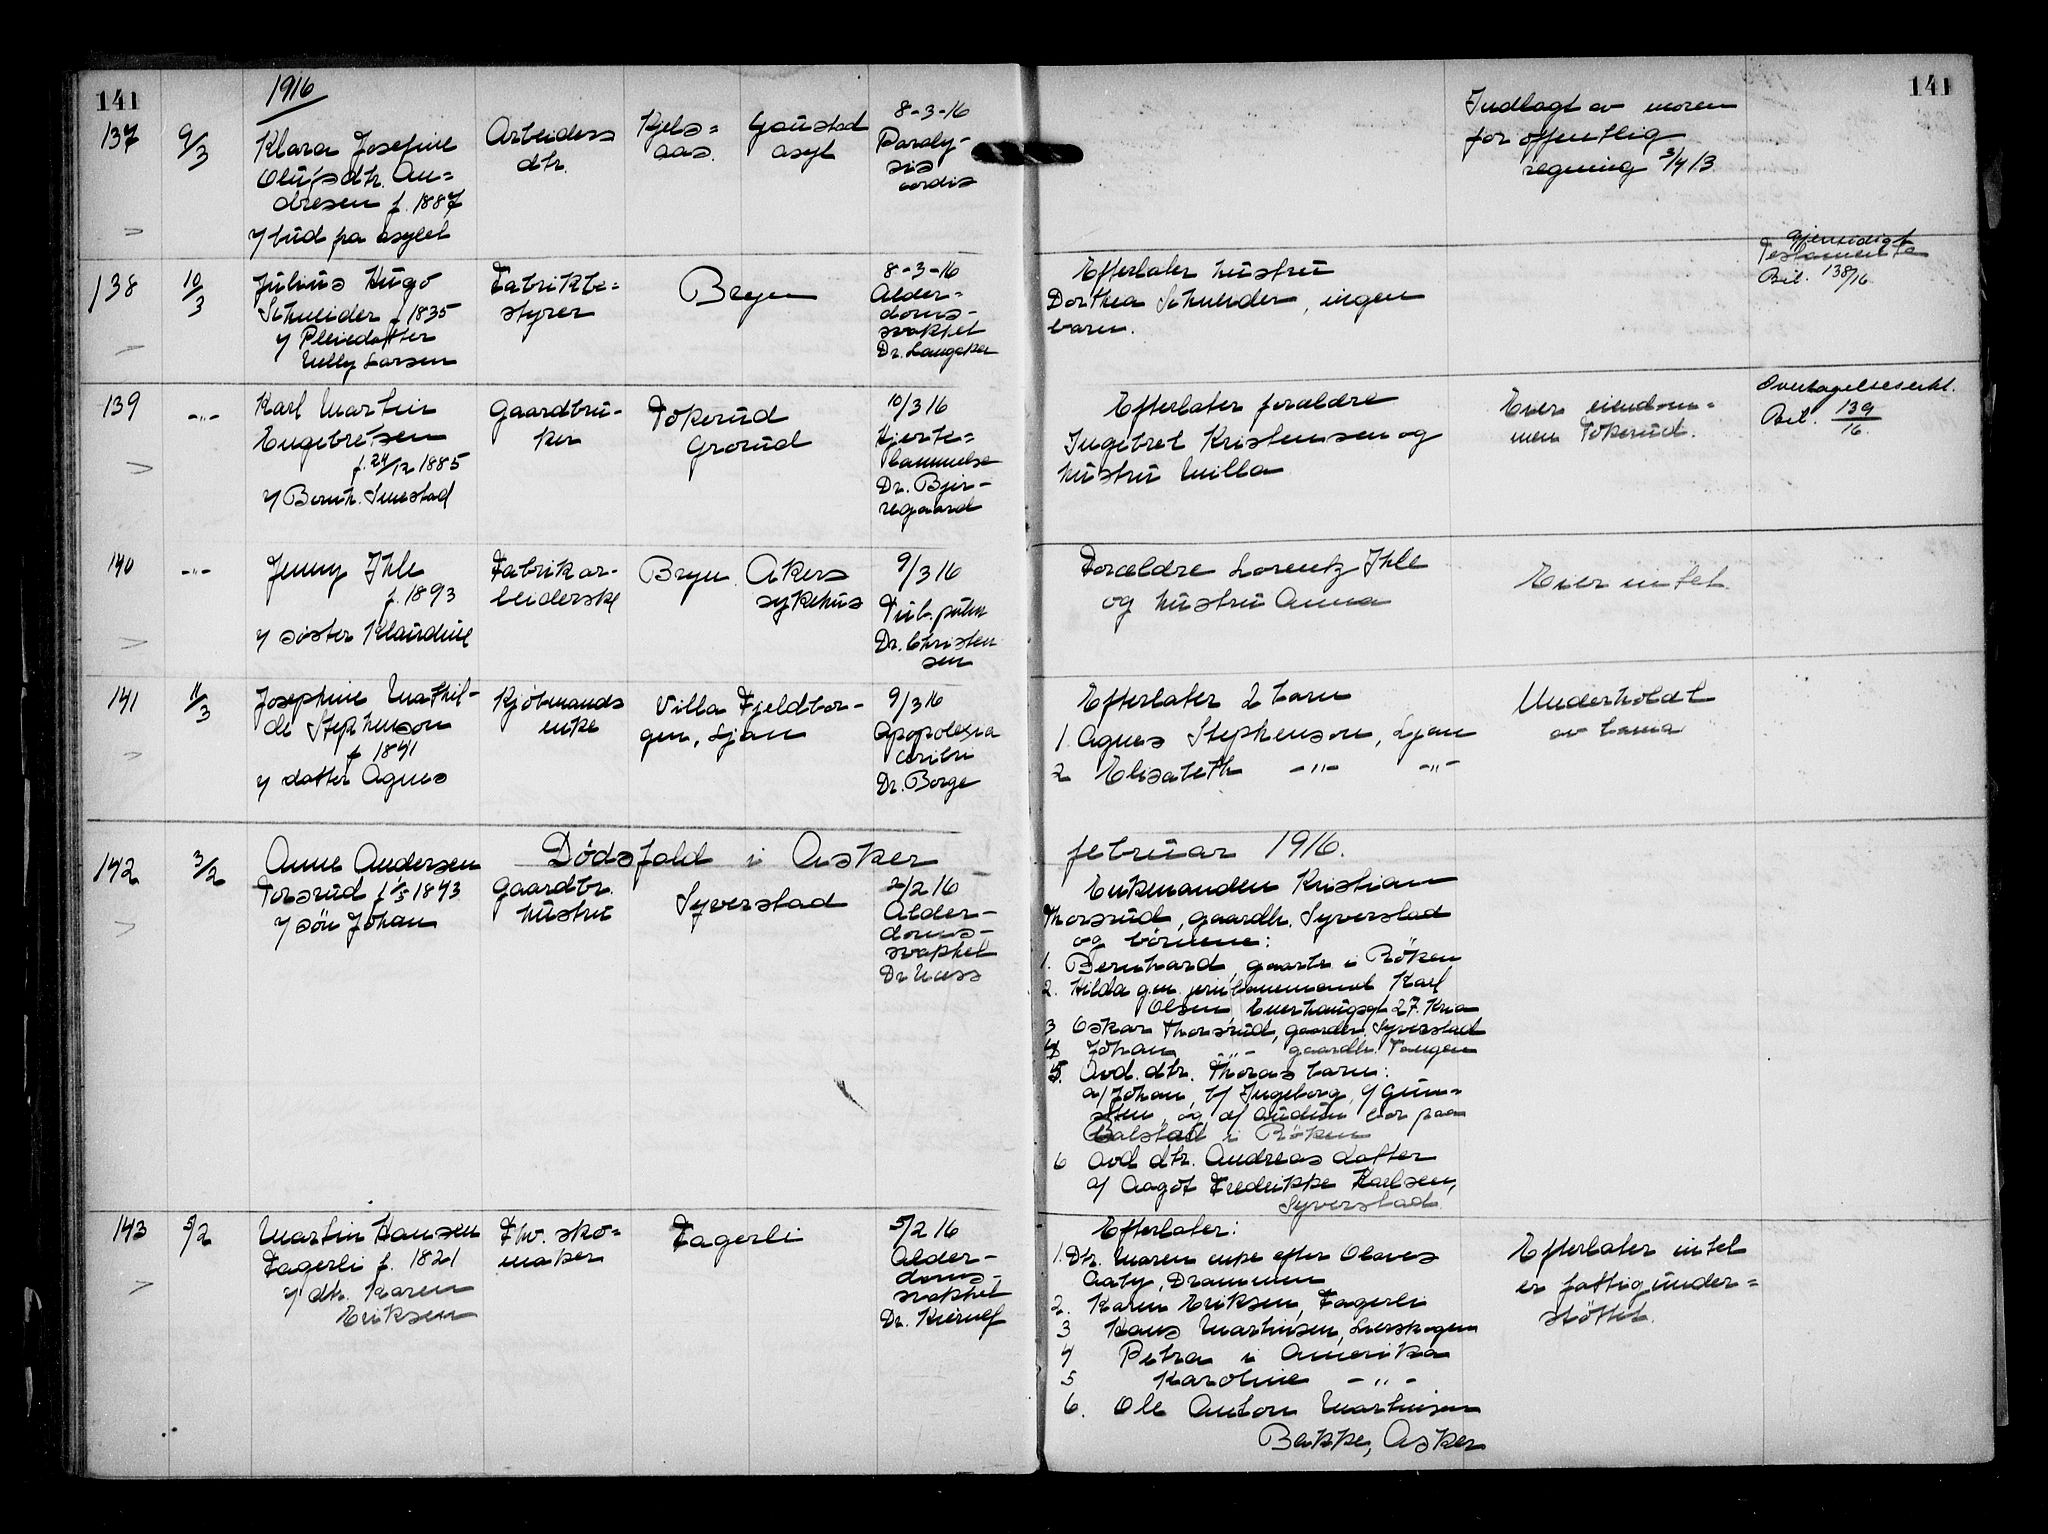 141
1916
137
9/3
Klara Josefine
Olufsdtr. An=
dresen f. 1887
v/ bud fra asylet
Arbeiders
dtr.
Kjels=
aas.
Gaustad
asyl
8-3-16
Paraly-
sis
cordis
138
10/3
Julius Hugo
Schneider f 1835
v/ Pleiedatter
Nelly Larsen
Fabrikbe=
styrer
Bryn
8-3-16
Alder=
doms-
svakhet
Dr. Langaker
139
-"-
Karl Martin
Engebretsen
f. 24/12 1885
v/ Bernh. Smestad
Gaardbru-
ker
Tokerud
Grorud
10/3 16
Hjerte=
lammelse
Dr. Bjer-
regaard
140
-"-
Jenny Ihle
f. 1893
v/ søster Klaudine
Fabrikar-
beiderske
Bryn
Akers
sykehus
9/3 16
Tub. pulm
Dr. Christen
sen
141
11/3
Josephine Mathil-
de Stephenson
f 1841
v/ datter Agnes
Kjøbmands
enke
Villa Fjeldbor-
gen, Ljan
9/3 16
Apopolexia
cerebri
Dr. Borge
142
3/2
Anne Andersen
Torsrud f 1/5 1843
v/ søn Johan
Dødsfald i Asker
gaardbr.
hustru
Syverstad
2/2 16
Alder-
doms-
svakhet
Dr Næss
143
5/2
Martin Hansen
Fagerli f. 1821
v/ dtr. Karen
Eriksen
Fhv. sko=
maker
Fagerli
5/2 16
Alder-
doms-
svakhet
Dr. Kierulf
141
Indlagt av moren
for offentlig
regning 3/4 13
Efterlater hustru
Dorthea Schneider, ingen
barn.
gjensidigt
Testamente
Bil. 138/16
Efterlater forældre
Ingebret Kristensen og
hustru Milla
Eier eiendom=
men Tokerud.
Overtagelseserkl.
Bil. 139/16.
Forældre Lorentz Ihle
og hustru Anna
Eier intet
Efterlater 2 barn
1. Agnes Stephenson, Ljan
2 Elisabeth -"- -"-
Underholdt
av barna
februar 1916.
Enkemanden Kristian
Thorsrud, gaardbr. Syverstad
og børnene:
1. Bernhard, gaarbr. i Røken
2. Hilda g.m. jernbanemand Karl
Olsen, Enerhaugsgt 27. Kria
3 Oskar Thorsrud, gaardbr, Syverstad
4 Johan -"- gaardbr. Tangen
5. Avd. dtr. Thoras barn:
a/ Johan, b/ Ingeborg, c/ Gun=
sten, og d/ Audun bor paa
Bølstad i Røken
6 Avd dtr. Andreas datter
a/ Aagot Fredrikke Karlsen,
Syverstad
Efterlater:
1. Dtr. Maren enke efter Olaves
Aaby, Drammen
2. Karen Eriksen, Fagerli
3 Hans Martinsen, Lierskogen
4 Petra i Amerika
5 Karoline -"-
6. Ole Anton Martinsen
Bakke, Asker
Efterlater intet
er fattigunder=
støttet.